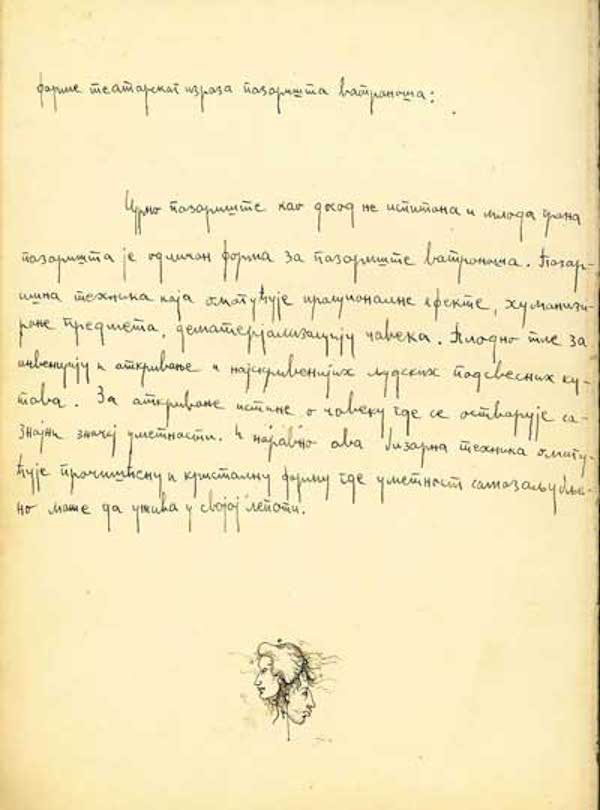 форме театарског израза позоришта ватроноша:
Црно позориште као досад не испитана и млода грана
позоришта је одличан форма за позориште ватроноша. Позор-
ишна техника која омогућује ирационалне ефекте, хуманизи-
ране предмета, дематерјализацију човека. Плодно тле за
инвенцију и откривање и најскривенијих људских подсвесних ку-
това. За откривање истине о човеку где се остварује са-
знајни значај уметности. И наравно ова бизарна техника омогу-
ћује прочишћену и кристалну форму где уметност самозаљубље-
но може да ужива у својој лепоти.